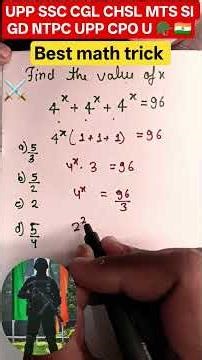 UPP SSC CGL CHSL MTS SI
GD NTPC UPP CPO U
Best math trick
Find the value of x
4^x + 4^x + 4^x = 96
4^x (1+1+1) = 96
a) 5/3
4^x · 3 = 96
b) 5/2
4^x = 96/3
c) 2
d) 5/4